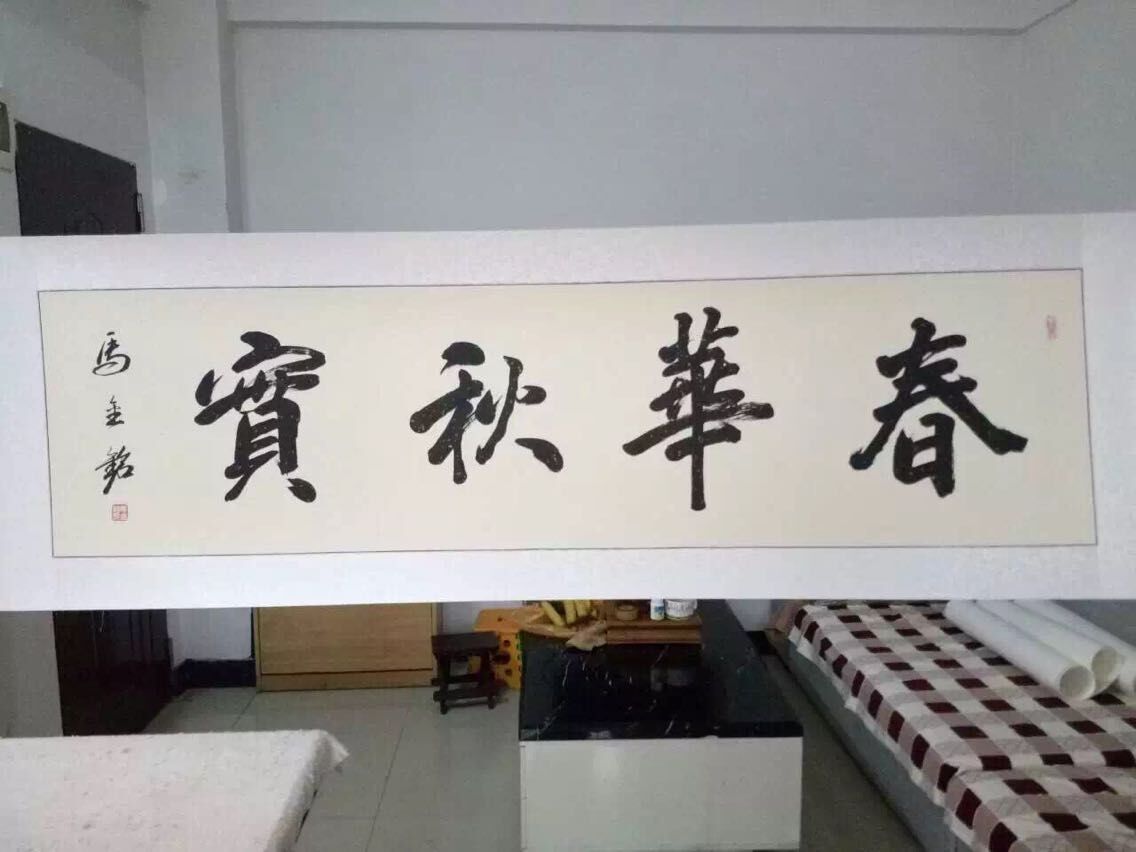 春華秋實
馬金銘